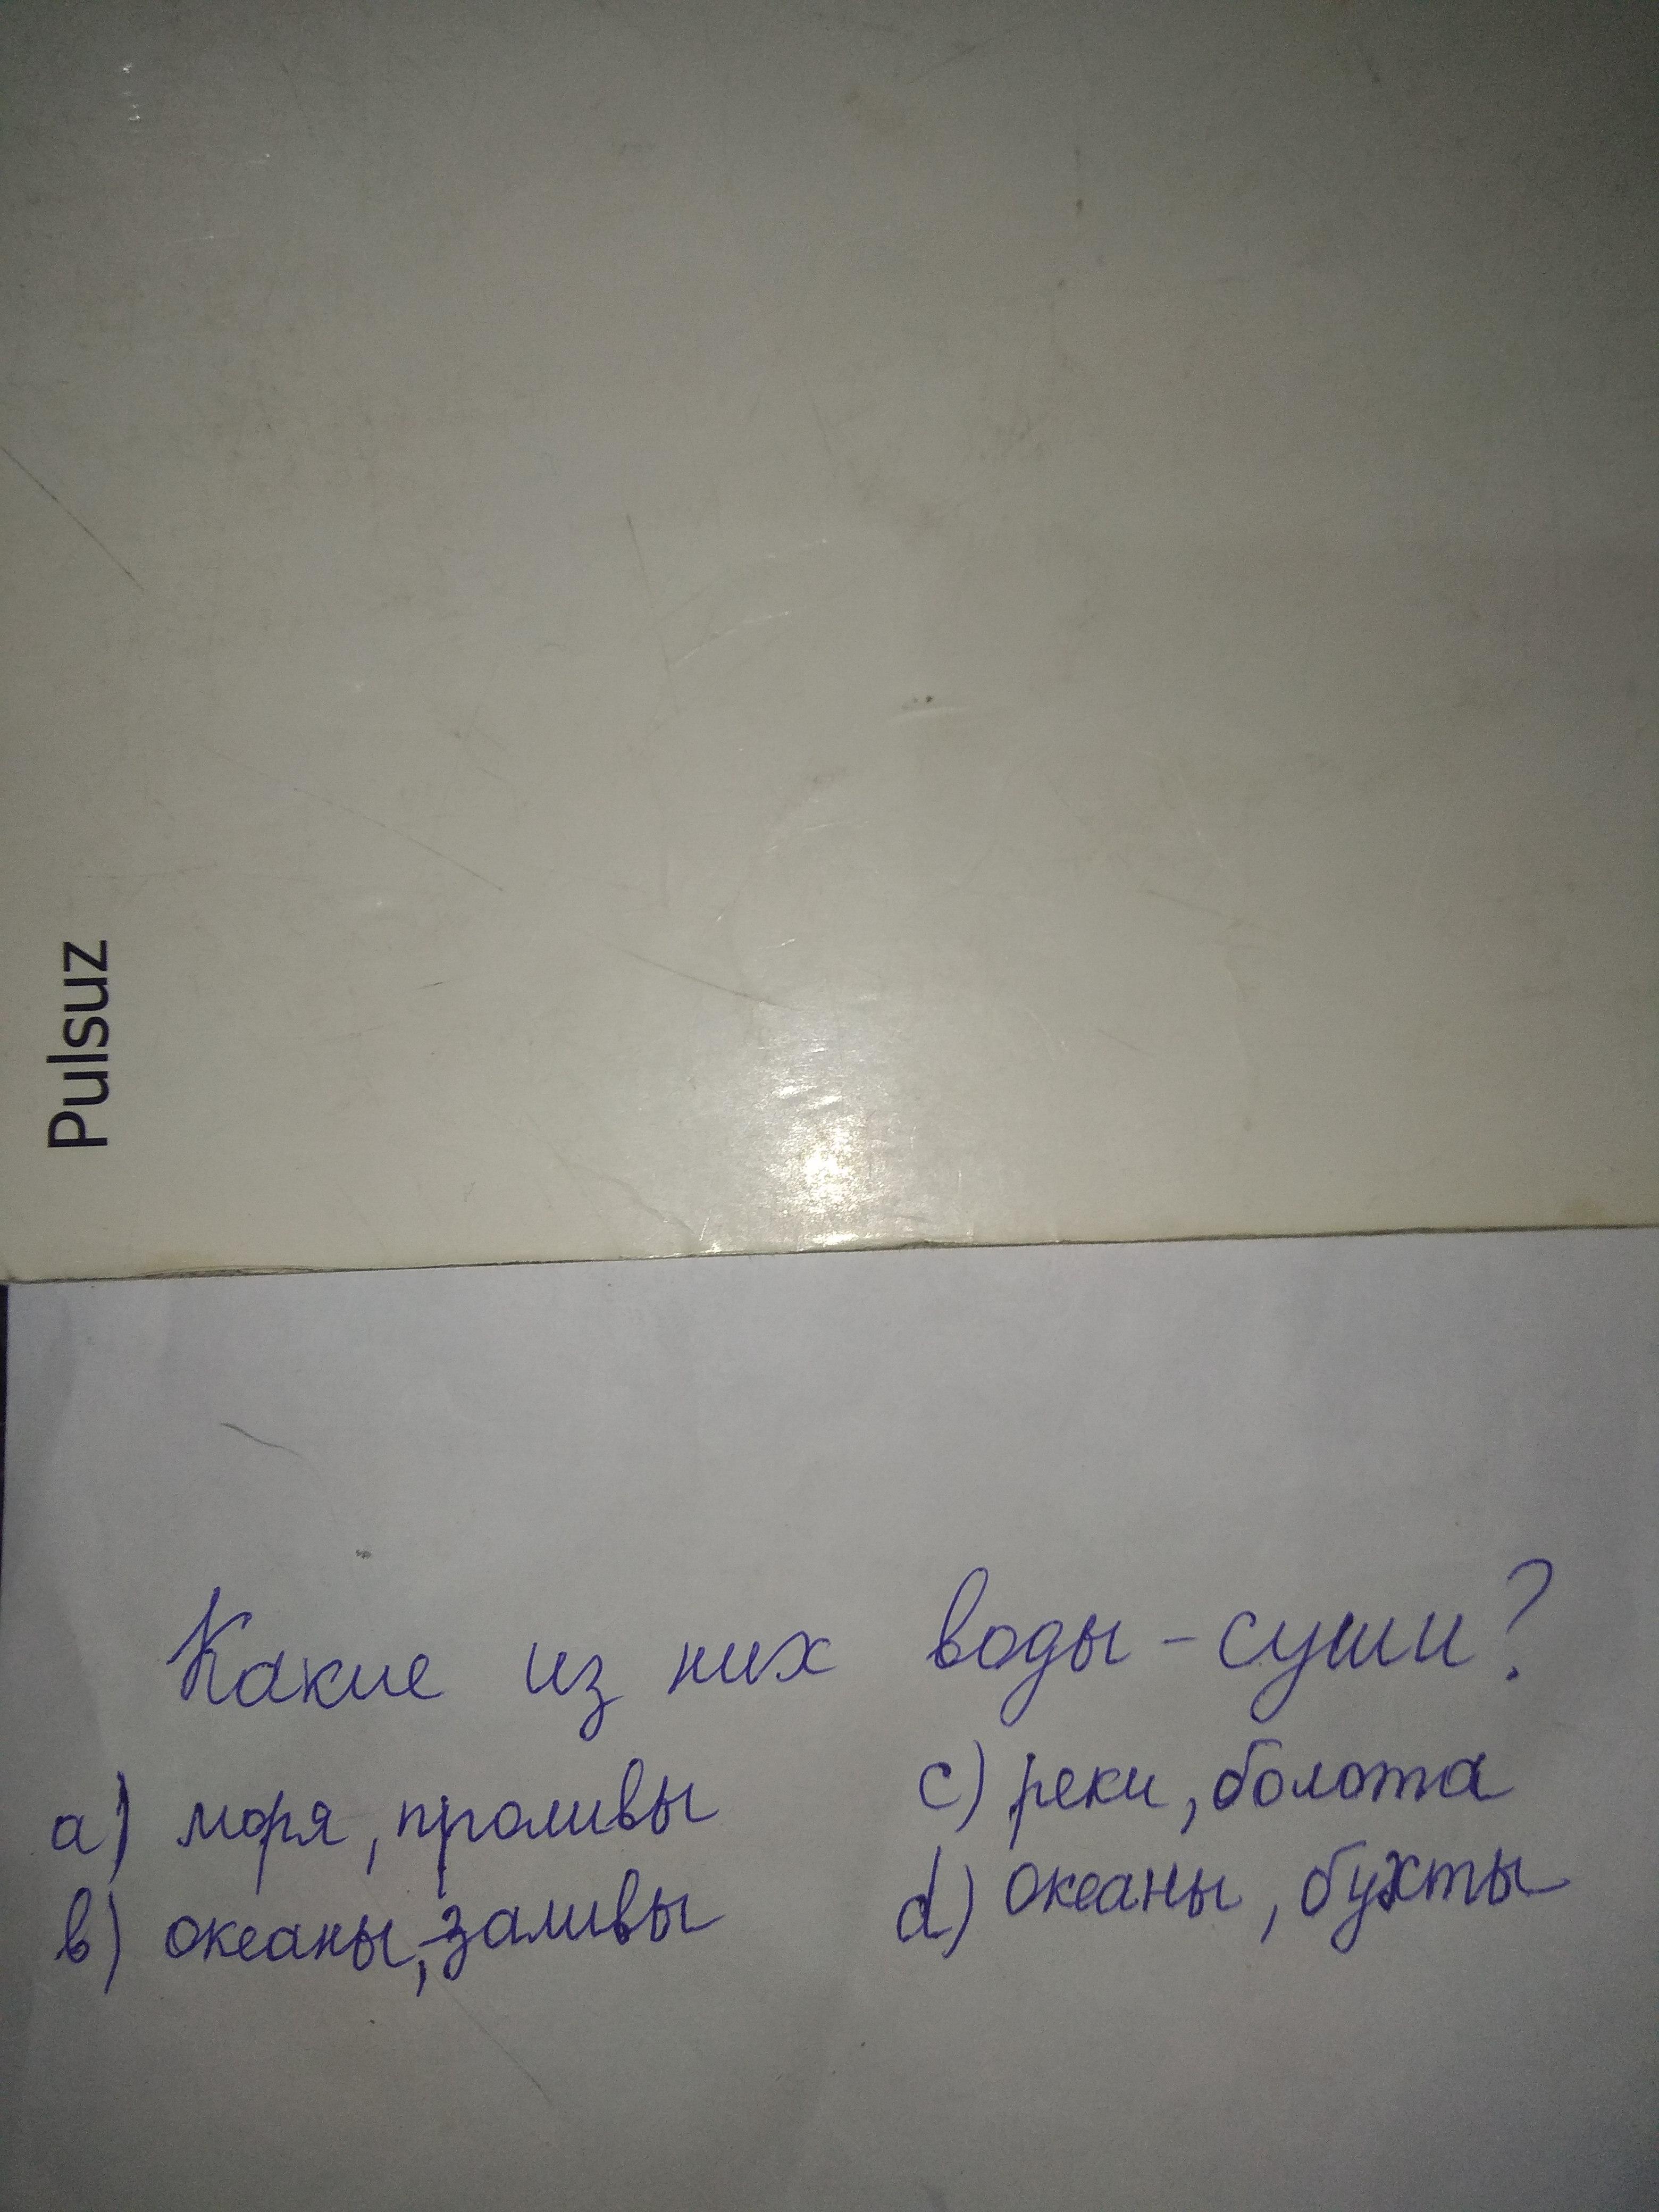 Pulsuz
Какие из них воды - суши?
a) моря, проливы
в) океаны, заливы
c) реки, болота
d) океаны, бухты